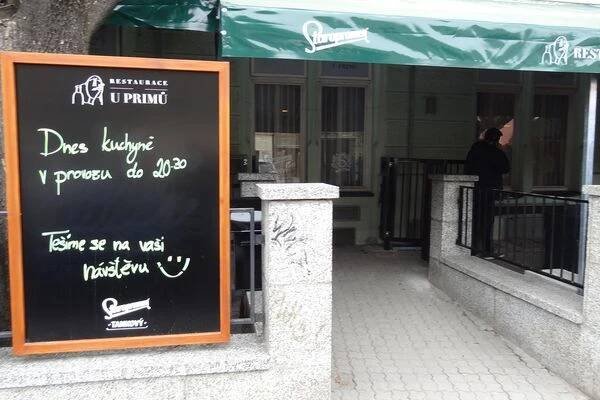 Staropramen
RESTAURACE
U PRIMŮ
Dnes kuchyně
v provozu do 20³⁰
Těšíme se na vaši
návštěvu
Staropramen
TANKOVÝ
REST
U PRIMŮ